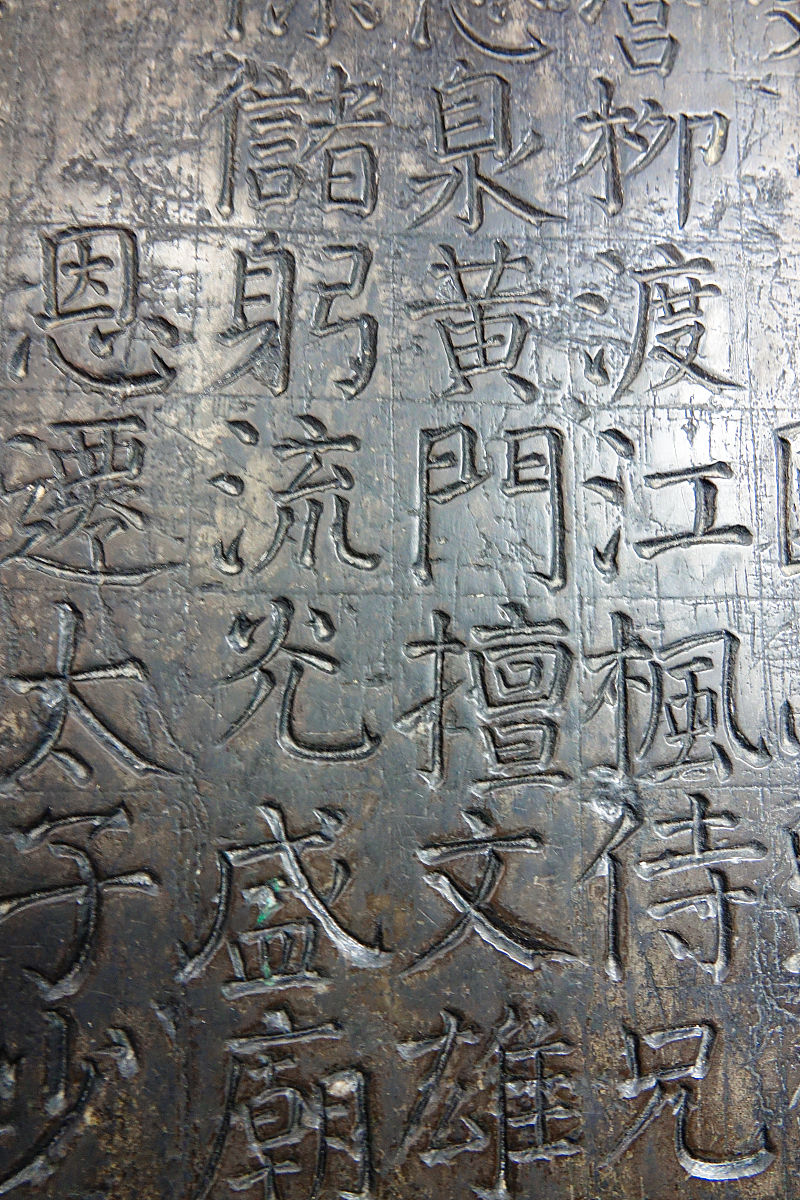 柳渡江楓侍兄
臮黃門擅文雄
儲躬流光盛廟
恩遷太子少